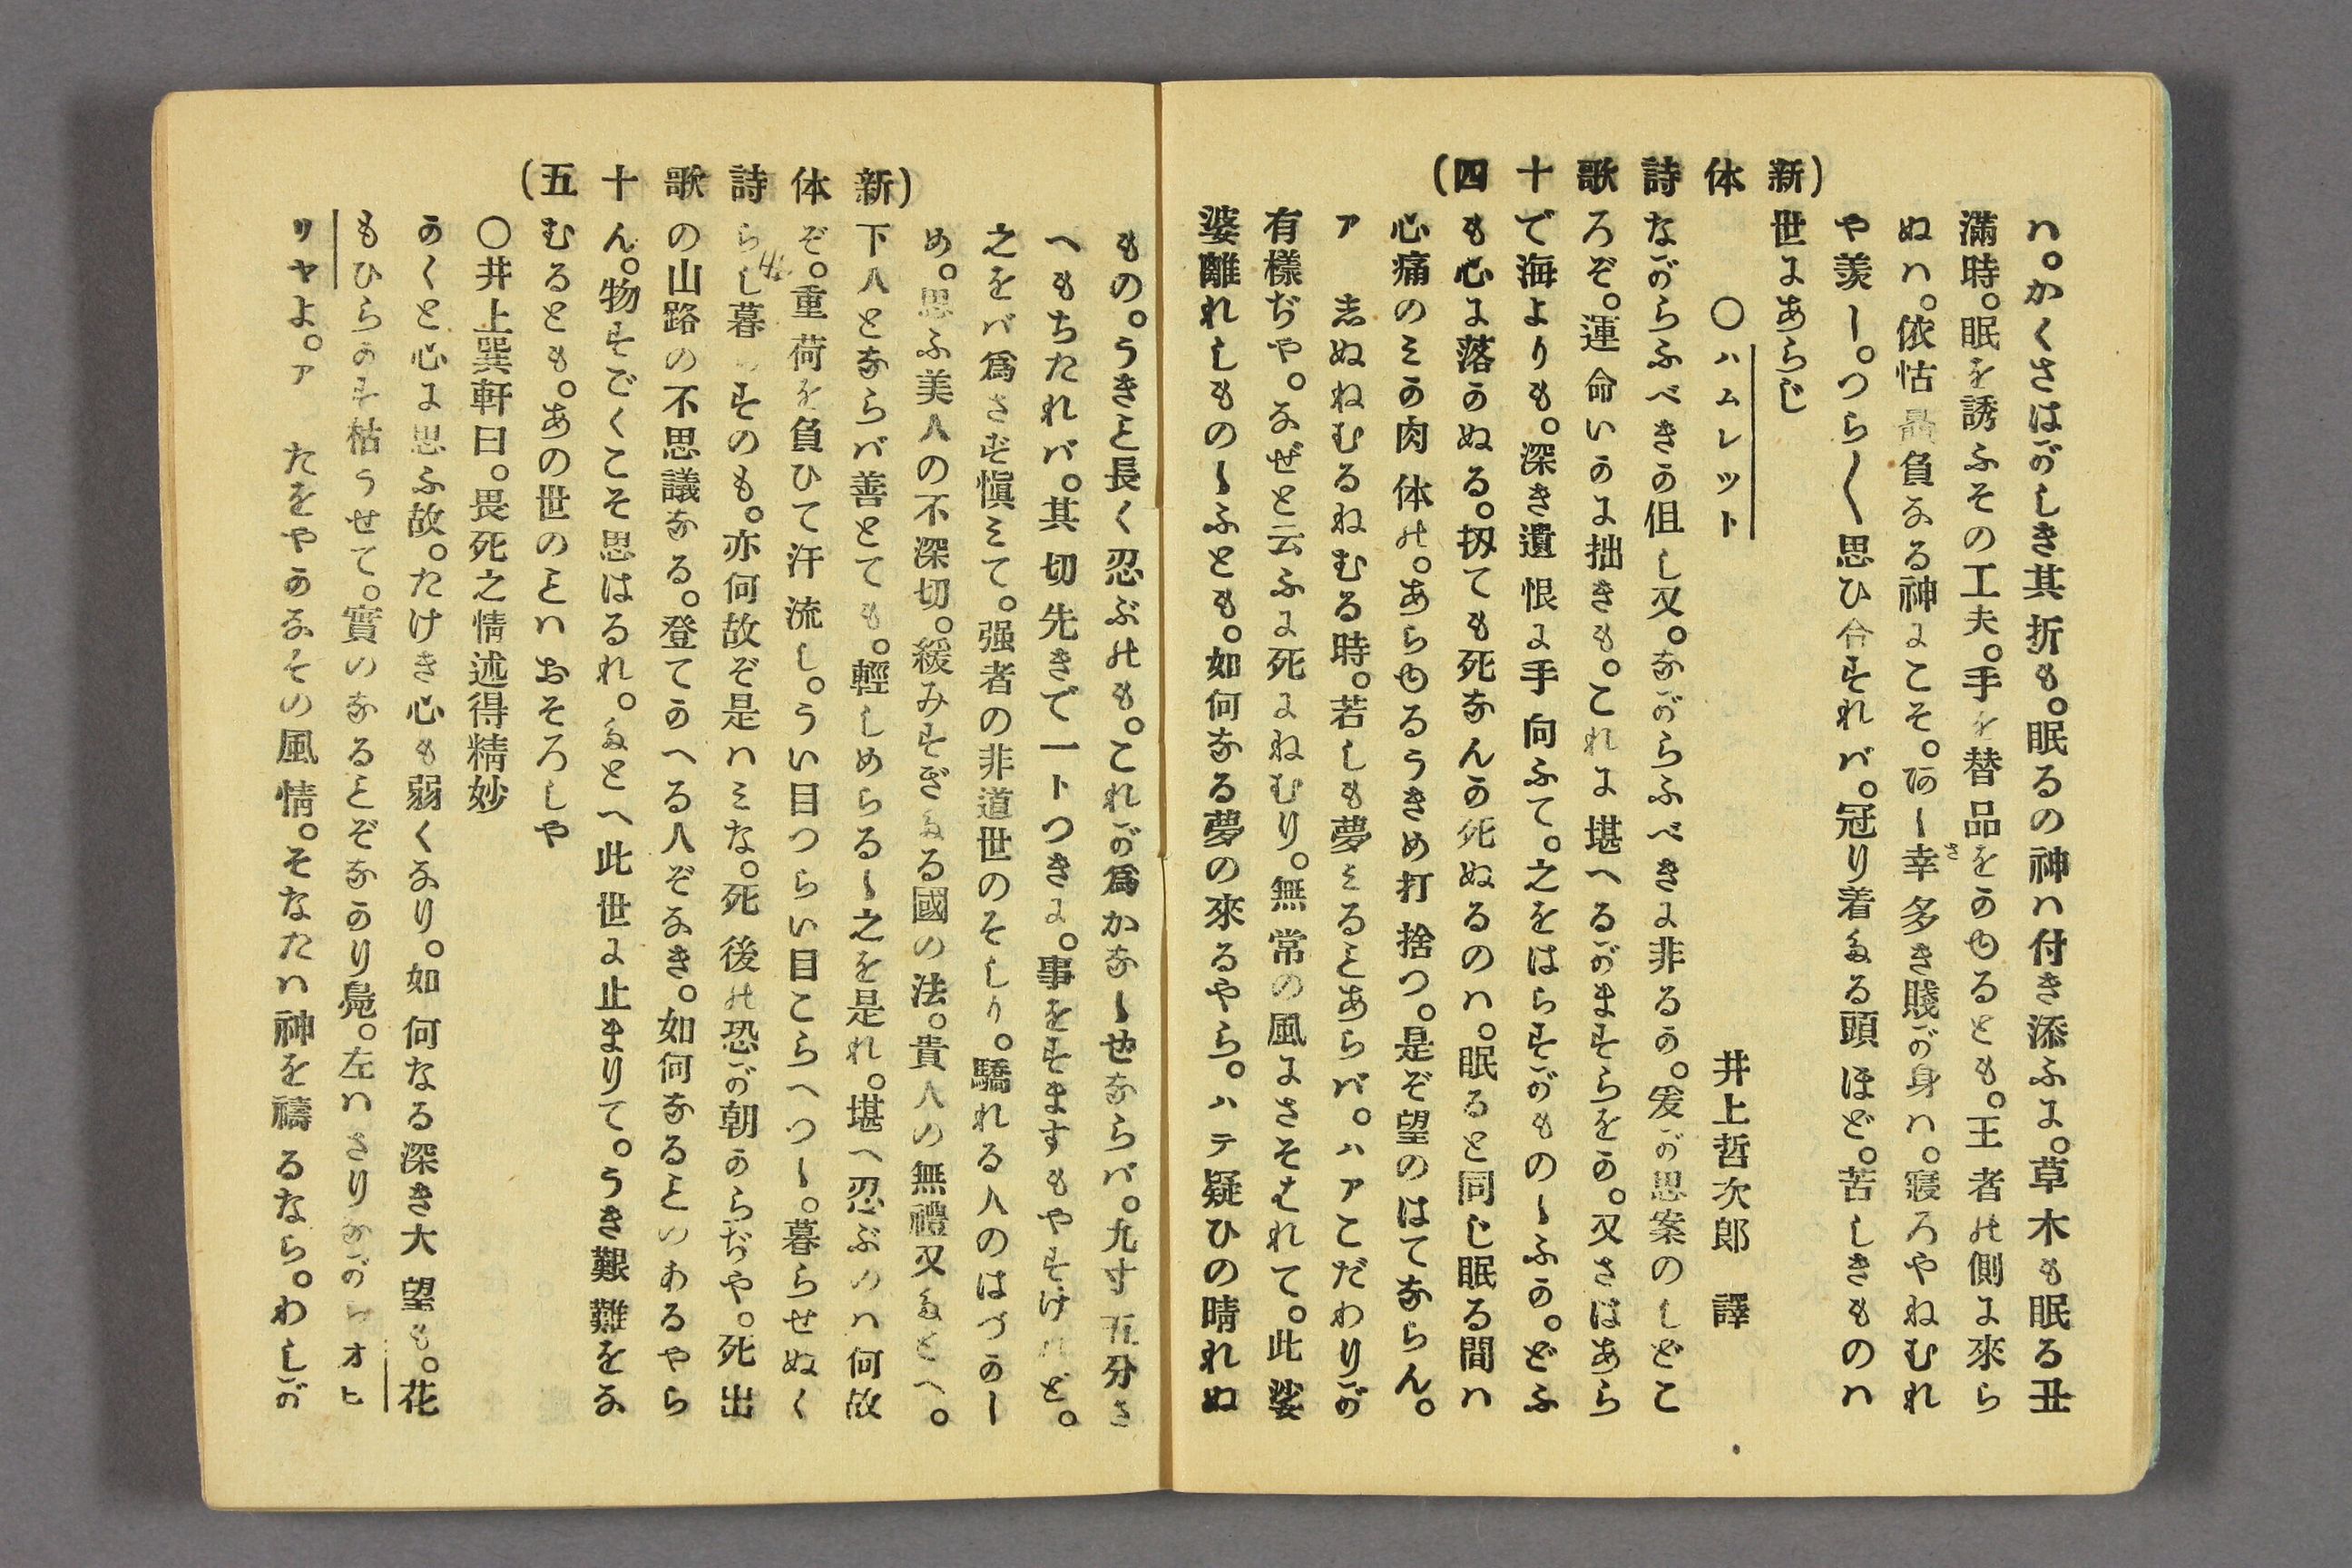 (新体詩歌十四)
ハ。かくさはがしき其折も。眠るの神ハ付き添ふに。草木も眠る丑
滿時。眠を誘ふその工夫。手を替品をかゆるとも。王者の側に來ら
ぬハ。依怙贔負なる神にこそ。アヽ幸多き賤が身ハ。寝ろやねむれ
や羨ー。つら〳〵思ひ合すれバ。冠り着たる頭ほど。苦しきものハ
世にあらじ
〇ハムレツト
井上哲次郎 譯
ながらふべきか但し又。ながらふべきに非るか。爰が思案のしどこ
ろぞ。運命いかに拙きも。これに堪へるがますらをか。又さはあら
で海よりも。深き遺恨に手向ふて。之をはらすがものヽふか。どふ
も心に落かぬる。扨ても死なんか死ぬるのハ。眠ると同じ眠る間ハ
心痛のミか肉体の。あらゆるうきめ打捨つ。是ぞ望のはてならん。
ア 志ぬねむるねむる時。若しも夢ミるヿあらバ。ハアこだわりが
有樣ぢや。なぜと云ふに死にねむり。無常の風にさそはれて。此娑
婆離れしものヽふとも。如何なる夢の來るやら。ハテ疑ひの晴れぬ
(新体詩歌十五)
もの。うきヿ長く忍ぶのも。これが爲かなヽせならバ。九寸五分さ
へもちたれバ。其切先きで一トつきに。事をすますもやすけれど。
之をバ爲さず愼ミて。强者の非道世のそしり。驕れる人のはづかー
め。思ふ美人の不深切。緩みすぎたる國の法。貴人の無禮又たとへ。
下人とならバ善とても。輕しめらるヽ之を是れ。堪へ忍ぶのハ何故
ぞ。重荷を負ひて汗流し。うい目つらい目こらへつヽ。暮らせぬく
らし暮のすのも。亦何故ぞ是ハミな。死後の恐が朝からぢや。死出
の山路の不思議なる。登てかへる人ぞなき。如何なるヿのあるやら
ん。物すごくこそ思はるれ。たとへ此世に止まりて。うき艱難をな
むるとも。あの世のヿハおそろしや
〇井上巽軒曰。畏死之情述得精妙
かくと心に思ふ故。たけき心も弱くなり。如何なる深き大望も。花
もひらかず枯うせて。實のなるヿぞなかり鳧。左ハさりながらオヒ
リヤよ。ア たをやかなその風情。そなたハ神を禱るなら。わしが